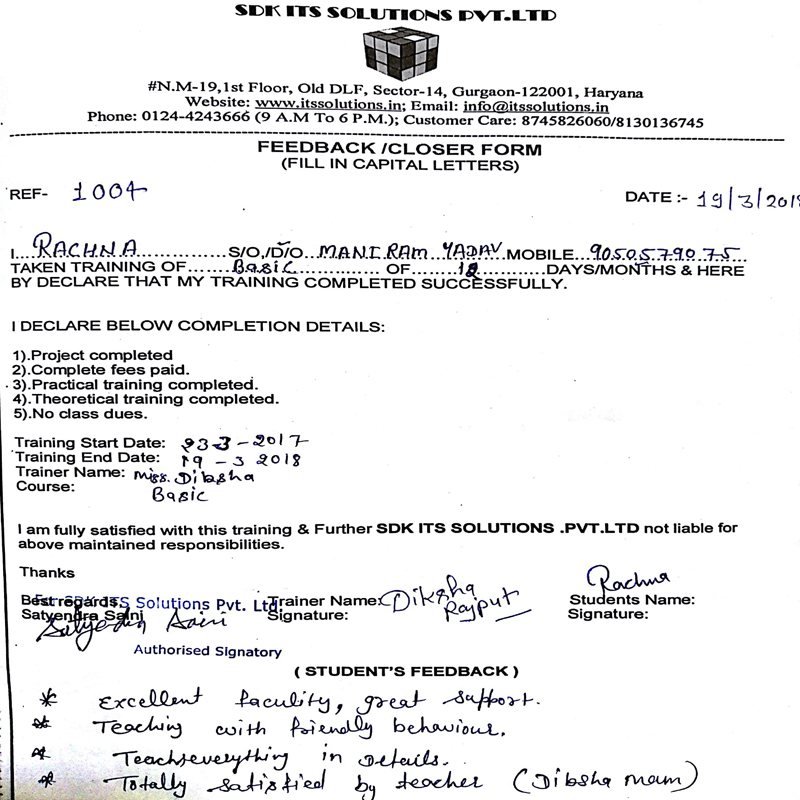 SDK ITS SOLUTIONS PVT.LTD
#N.M-19,1st Floor, Old DLF, Sector-14, Gurgaon-122001, Haryana
Website: www.itssolutions.in; Email: info@itssolutions.in
Phone: 0124-4243666 (9 A.M To 6 P.M.); Customer Care: 8745826060/8130136745
FEEDBACK /CLOSER FORM
(FILL IN CAPITAL LETTERS)
REF- 1004 DATE :- 19/3/2018
I...RACHNA...............S/O,D/O...MANI RAM YADAV MOBILE...9050579075...
TAKEN TRAINING OF.......Basic.................. OF.........12...........DAYS/MONTHS & HERE
BY DECLARE THAT MY TRAINING COMPLETED SUCCESSFULLY.
I DECLARE BELOW COMPLETION DETAILS:
1).Project completed
2).Complete fees paid.
3).Practical training completed.
4).Theoretical training completed.
5).No class dues.
Training Start Date: 23-3-2017
Training End Date: 19-3 2018
Trainer Name: Miss. Diksha
Course: Basic
I am fully satisfied with this training & Further SDK ITS SOLUTIONS .PVT.LTD not liable for
above maintained responsibilities.
Thanks
Rachna
Best regards, For SDK ITS Solutions Pvt. Ltd. Trainer Name: Diksha Students Name:
Satyendra Saini Signature: Rajput Signature:
Satyendra Saini
Authorised Signatory
( STUDENT'S FEEDBACK )
* Excellent faculity, great support.
* Teaching with friendly behaviour.
* Teach everything in Details.
* Totally satisfied by teacher (Diksha mam)